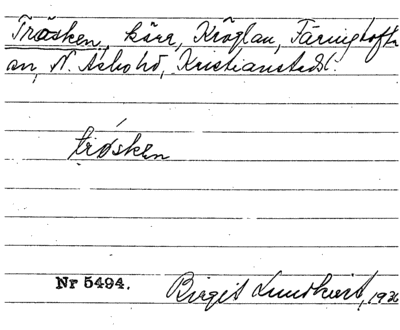 Träsken, kärr, Kröglau, Färinghoft
sn, N. Åsbo hd, Kristianstads l.
tråsken
Nr 5494. Birgit Lundkvist, 1936